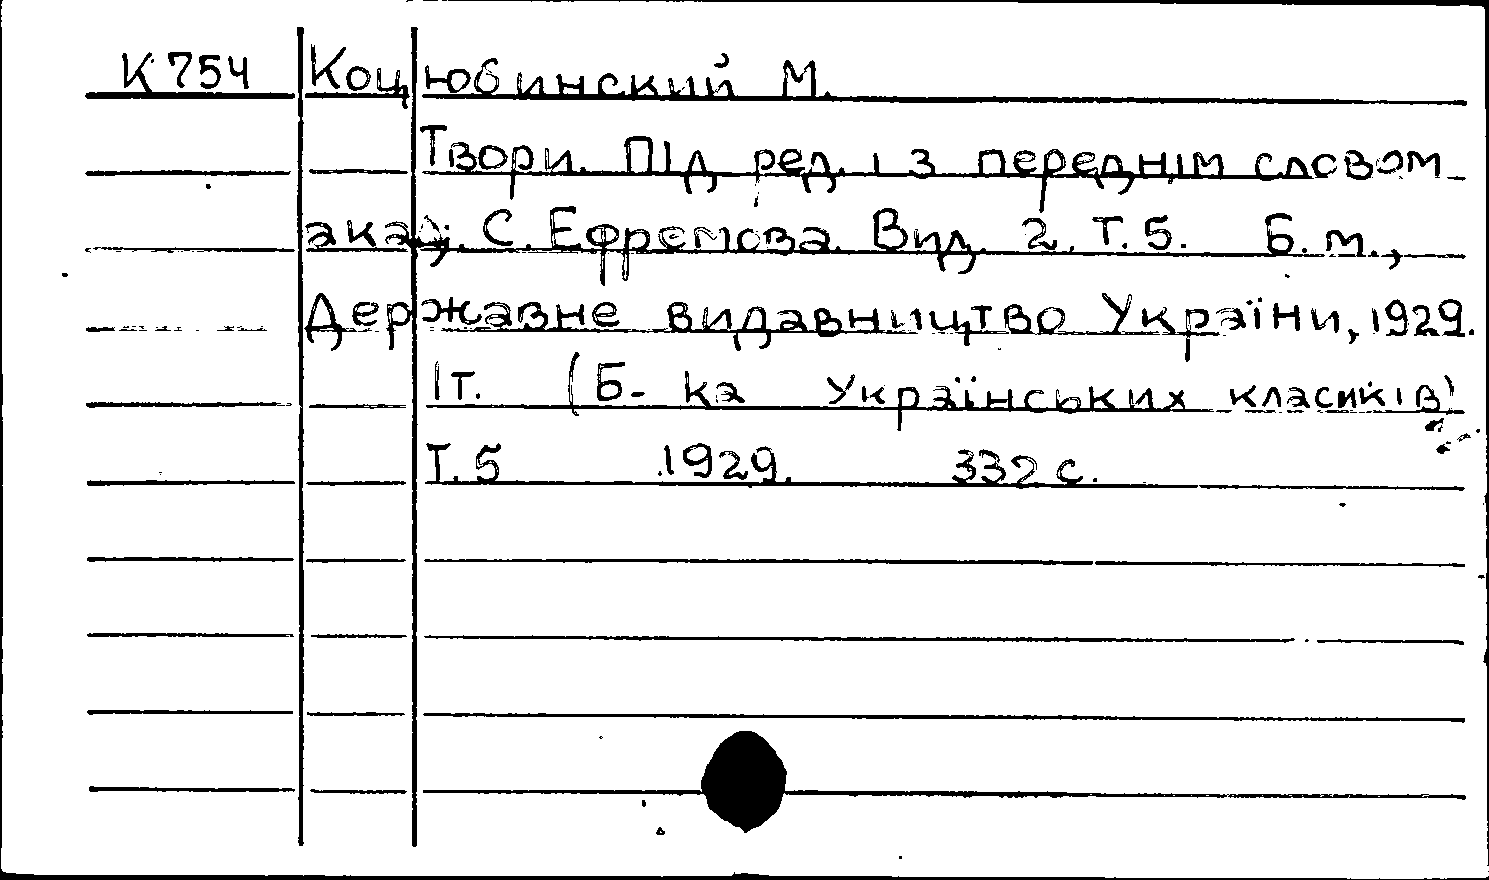 К754 Коцюбинский М.
Твори. Під ред. і з переднім словом
акад. С. Ефремова. Вид. 2. Т. 5. Б. м.,
Державне видавництво України, 1929.
1т. (Б-ка Українських класиків)
Т. 5 1929. 332 с.